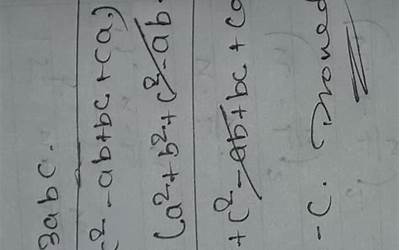 3abc.
c² - ab + bc + ca)
(a² + b² + c² - ab -
+ c² - ab + bc + ca
- c. Proved